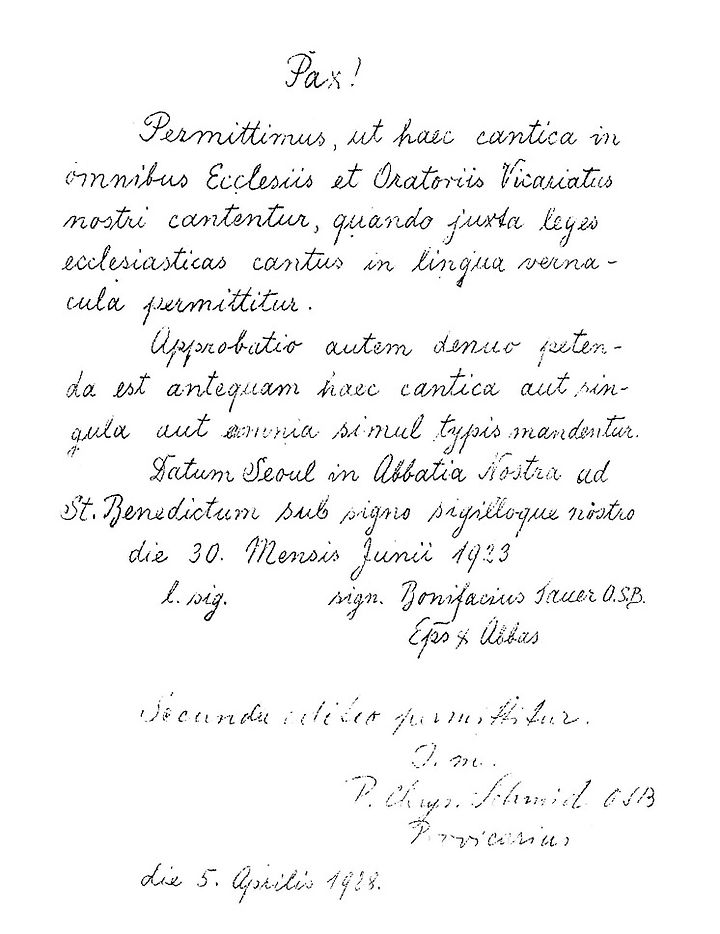 Pax!
Permittimus, ut haec cantica in
omnibus Ecclesiis et Oratoriis Vicariatus
nostri cantentur, quando juxta leges
ecclesiasticas cantus in lingua verna-
cula permittitur.
Approbatio autem denuo peten-
da est antequam haec cantica aut sin-
gula aut omnia simul typis mandentur.
Datum Seoul in Abbatia Nostra ad
St. Benedictum sub signo sigilloque nostro
die 30. Mensis Junii 1923
l. sig. sign. Bonifacius Sauer O.S.B.
Eps & Abbas
Secunda editio permittitur.
I. m.
P. Chrys. Schmid OSB
Provicarius
die 5. Aprilis 1928.